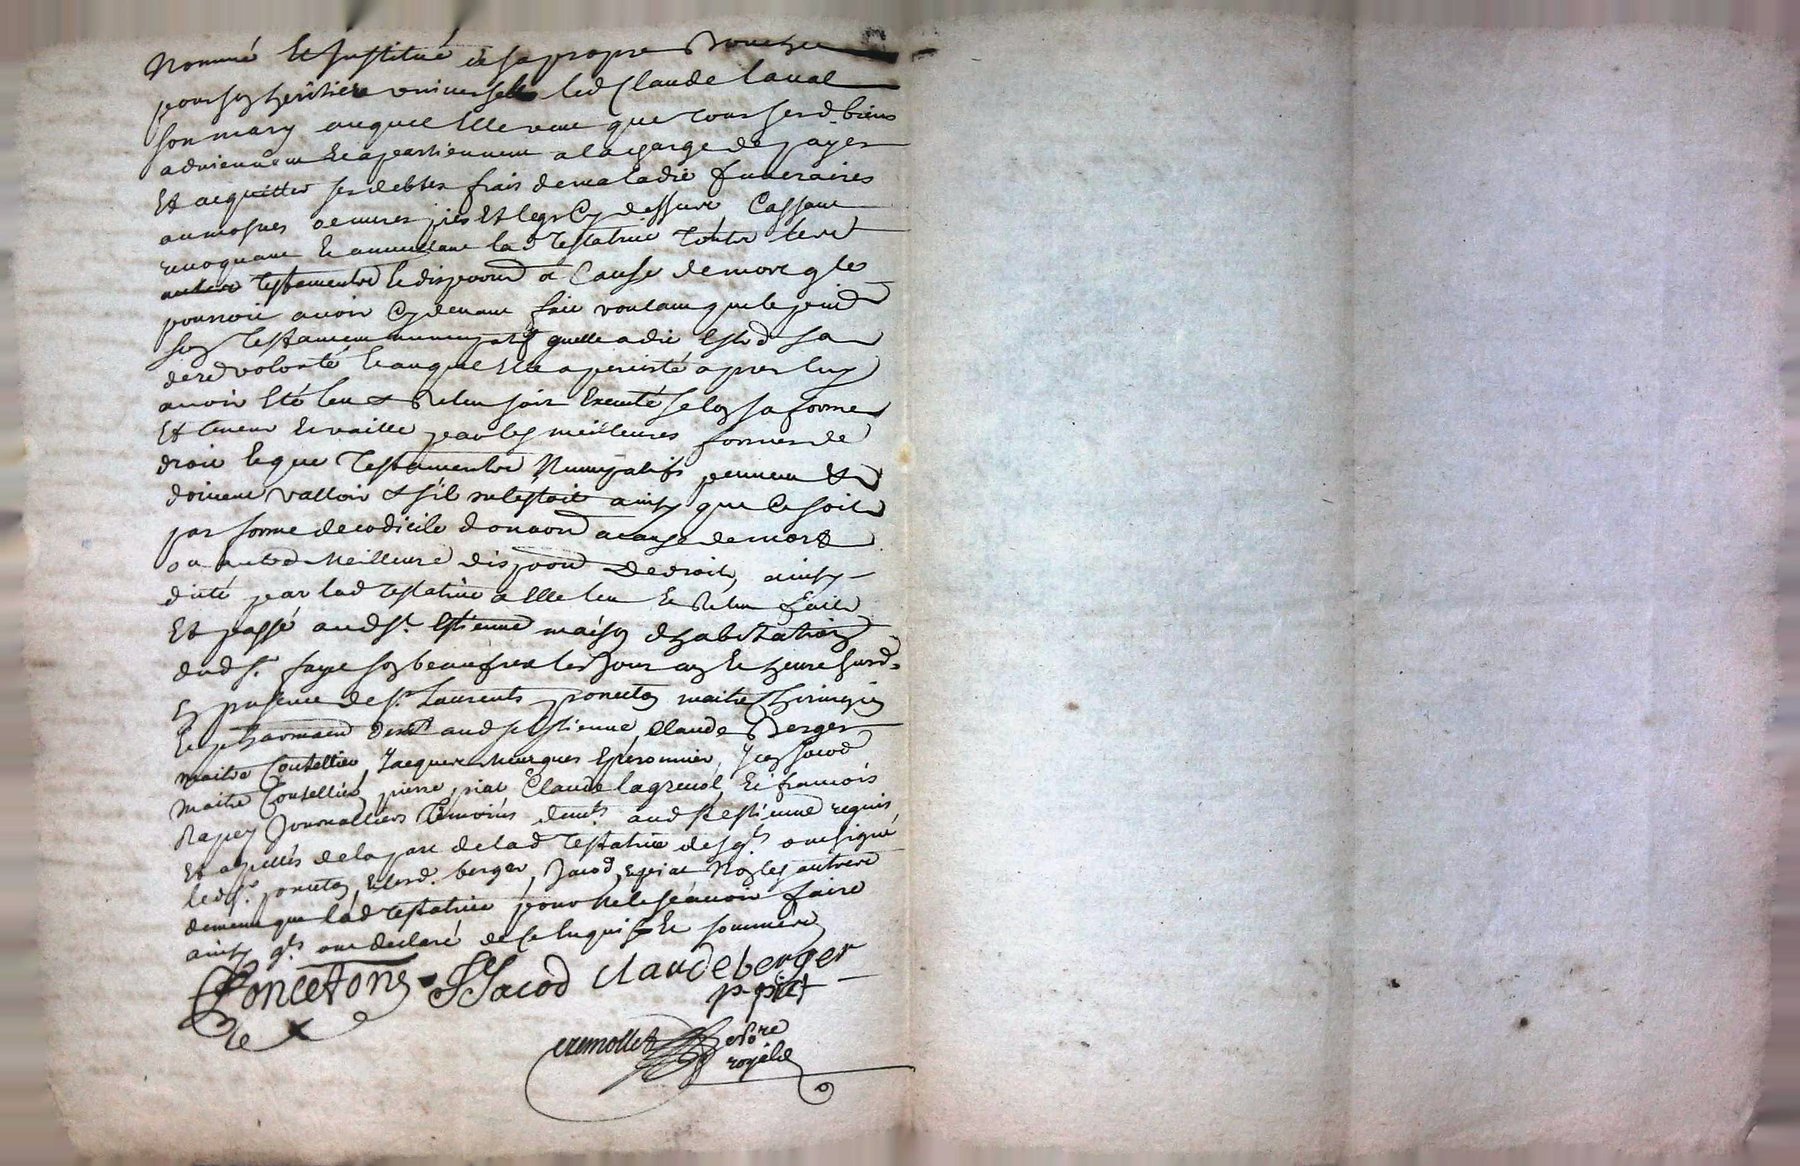 Nommé Et Institué de sa propre Bouche
pour son heritier universelle led Claude Laval
son mary auquel Elle veut que tous sesd. biens
adviennent Et apartiennent a la charge de payer
Et acquitter ses debtes frais de maladie funeraires
aumosnes oeuvres pies Et legs Cy dessus Cassant
revoquant Et annullant lad Testatrice toute
autre Testamentre Et dispoond a Cause de mort qle
pourroit avoir Cy devant fait voulant que le pnt
son Testament nuncupatif quelle a dit Estre sa
dere volonté Et auquel Elle a percisté apres luy
avoir Eté leu & Releu soit Executé selon sa forme
Et teneur Et vaille par les meilleures formes de
droit Et que Testamentre Nuncupatifs peuvent Et
doivent valloir & s'il ne lestoit ainsy que Ce soit
par forme de codicile donaond a cause de mort
ou autre Meilleure dispoond de droit, ainsy
dicté par lad Testatrice a Elle leu Et Releu fait
Et passé aud St. Estienne maison dhabitation
dud sr. faye son beaufrere les Jour an Et heure susd.
En presence de sr. Laurents ponceton maitre Chirurgien
demt aud st Estienne, Claude Berger
maitre Coutellier, Jacques Murgues Eperonnier, Jean Jacod
Maitre Coutellier, pierre piat Claude lagrevol, Et francois
Rapey Journalliers temoins demts. aud St Estienne requis
Et apellés de la part de lad Testatrice desqls. ont signé
led sr. ponceton, Et lesd. berger, Jacod, Et piat Non les autres
de meme que lad Testatrice pour ne le sçavoir faire
ainsy qls ont declaré de Ce Enquis Et sommés
Poncetons JJacod claude berger
p. piat
cremollet no re
royale